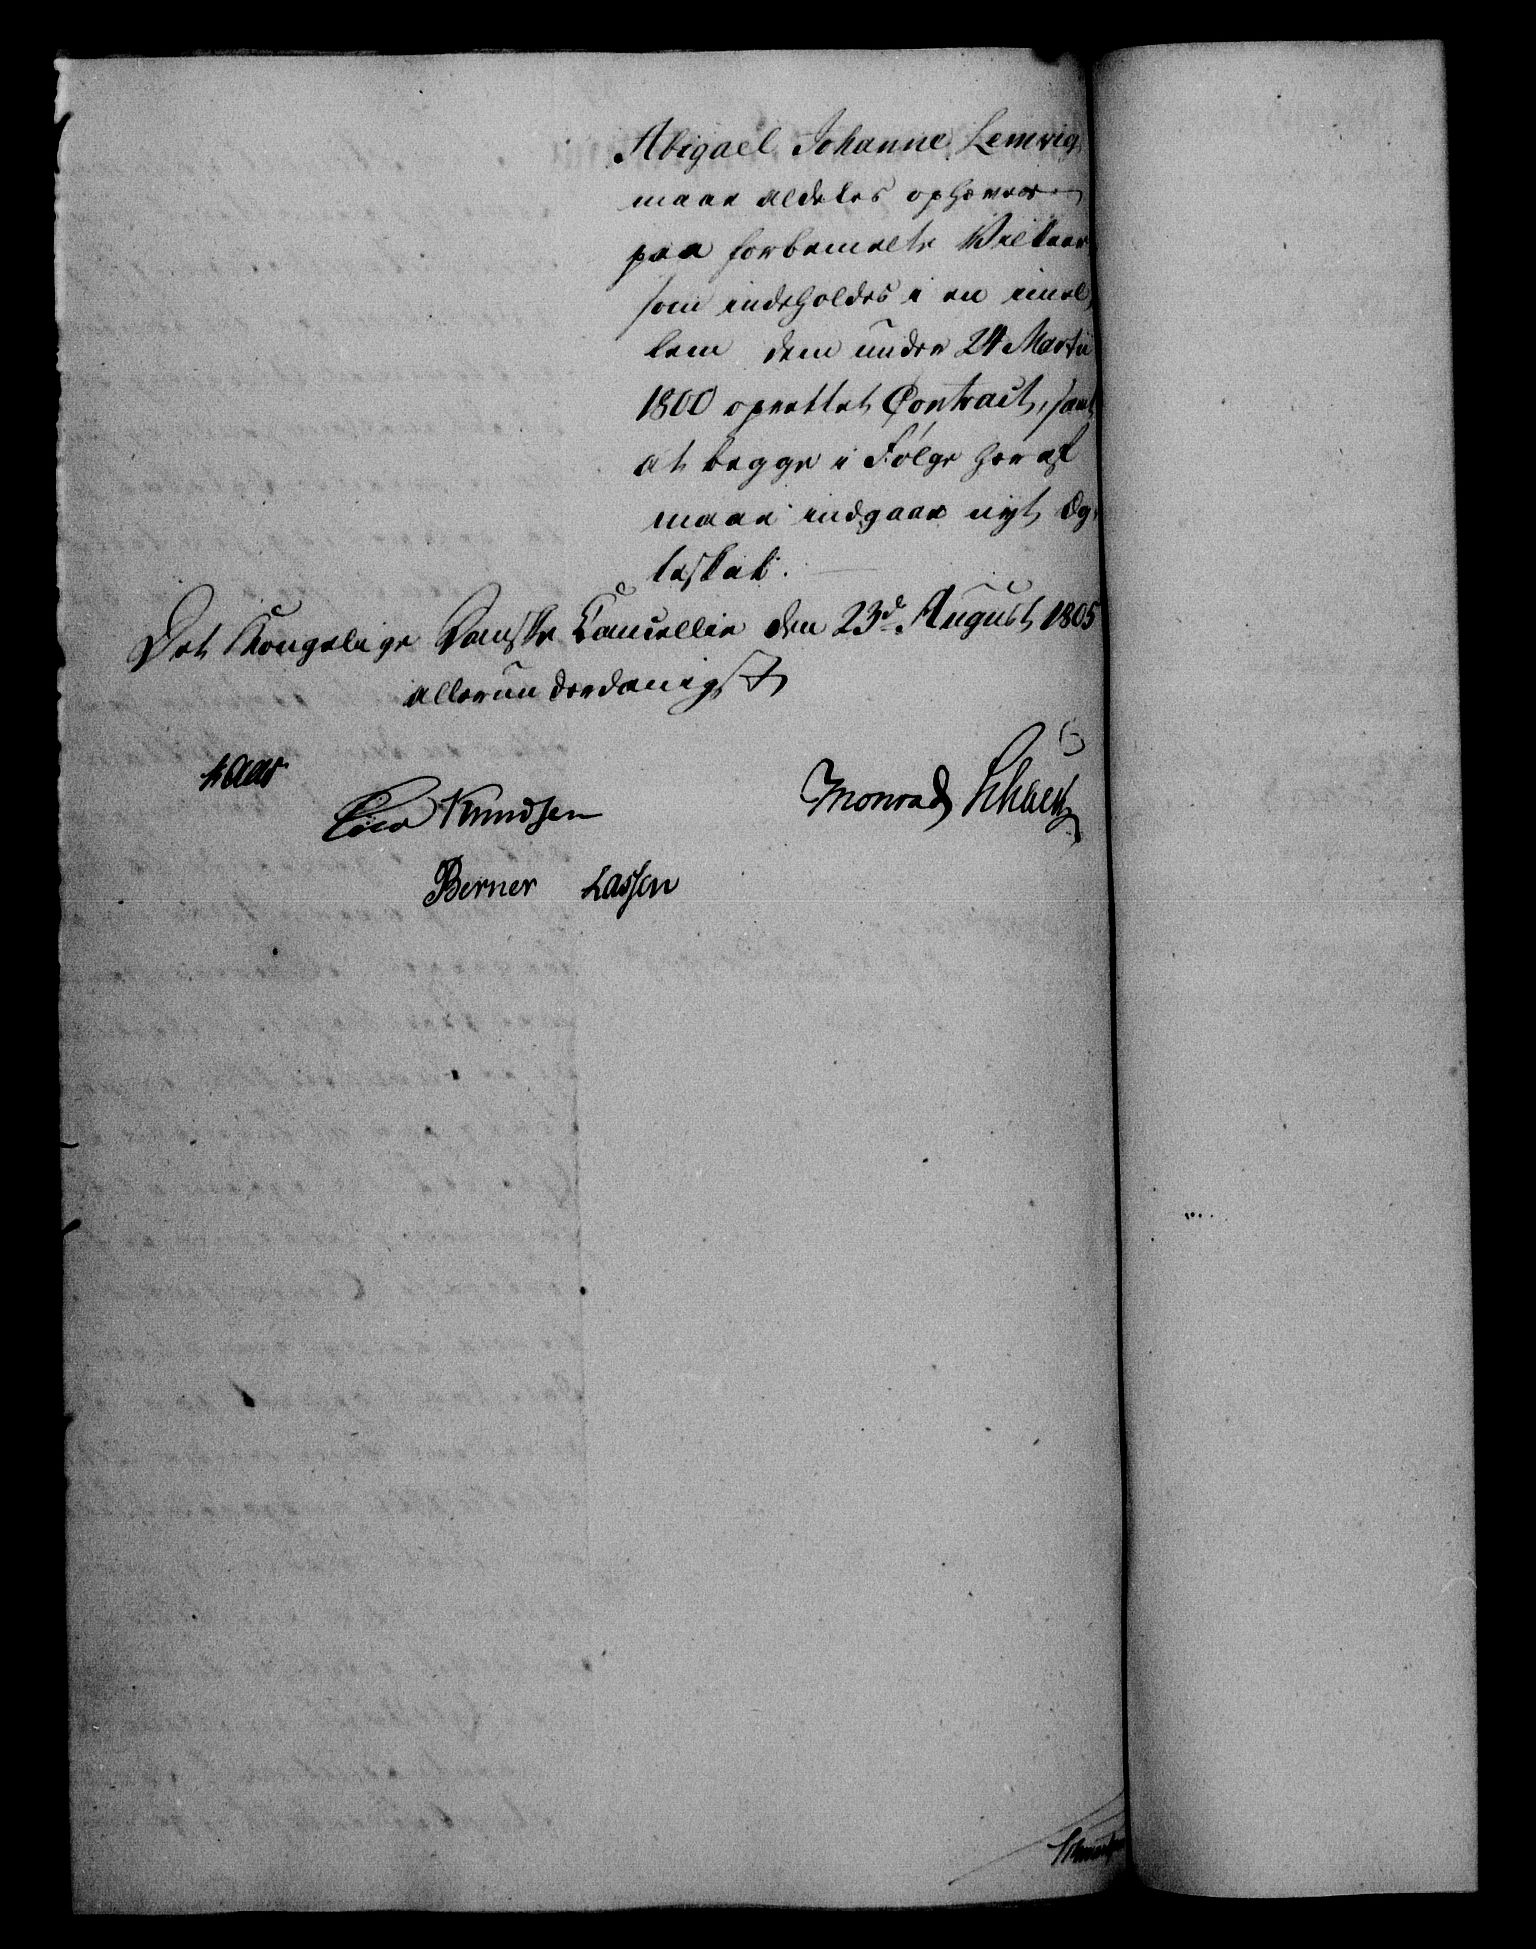 Abigael Johanne Lemvig
maae aldeles ophæves
paa forbemelte Vilkaar
som indeholdes i en imel
lem dem under 24 Martii
1800 oprettet Contract, samt
at begge i Følge heraf
maae indgaae nyt Æg-
teskab.
Det Kongelige Danske Cancellie den 23d August 1805
allerunderdanigst
Kaas
Knudsen Monrad
Berner Lassen